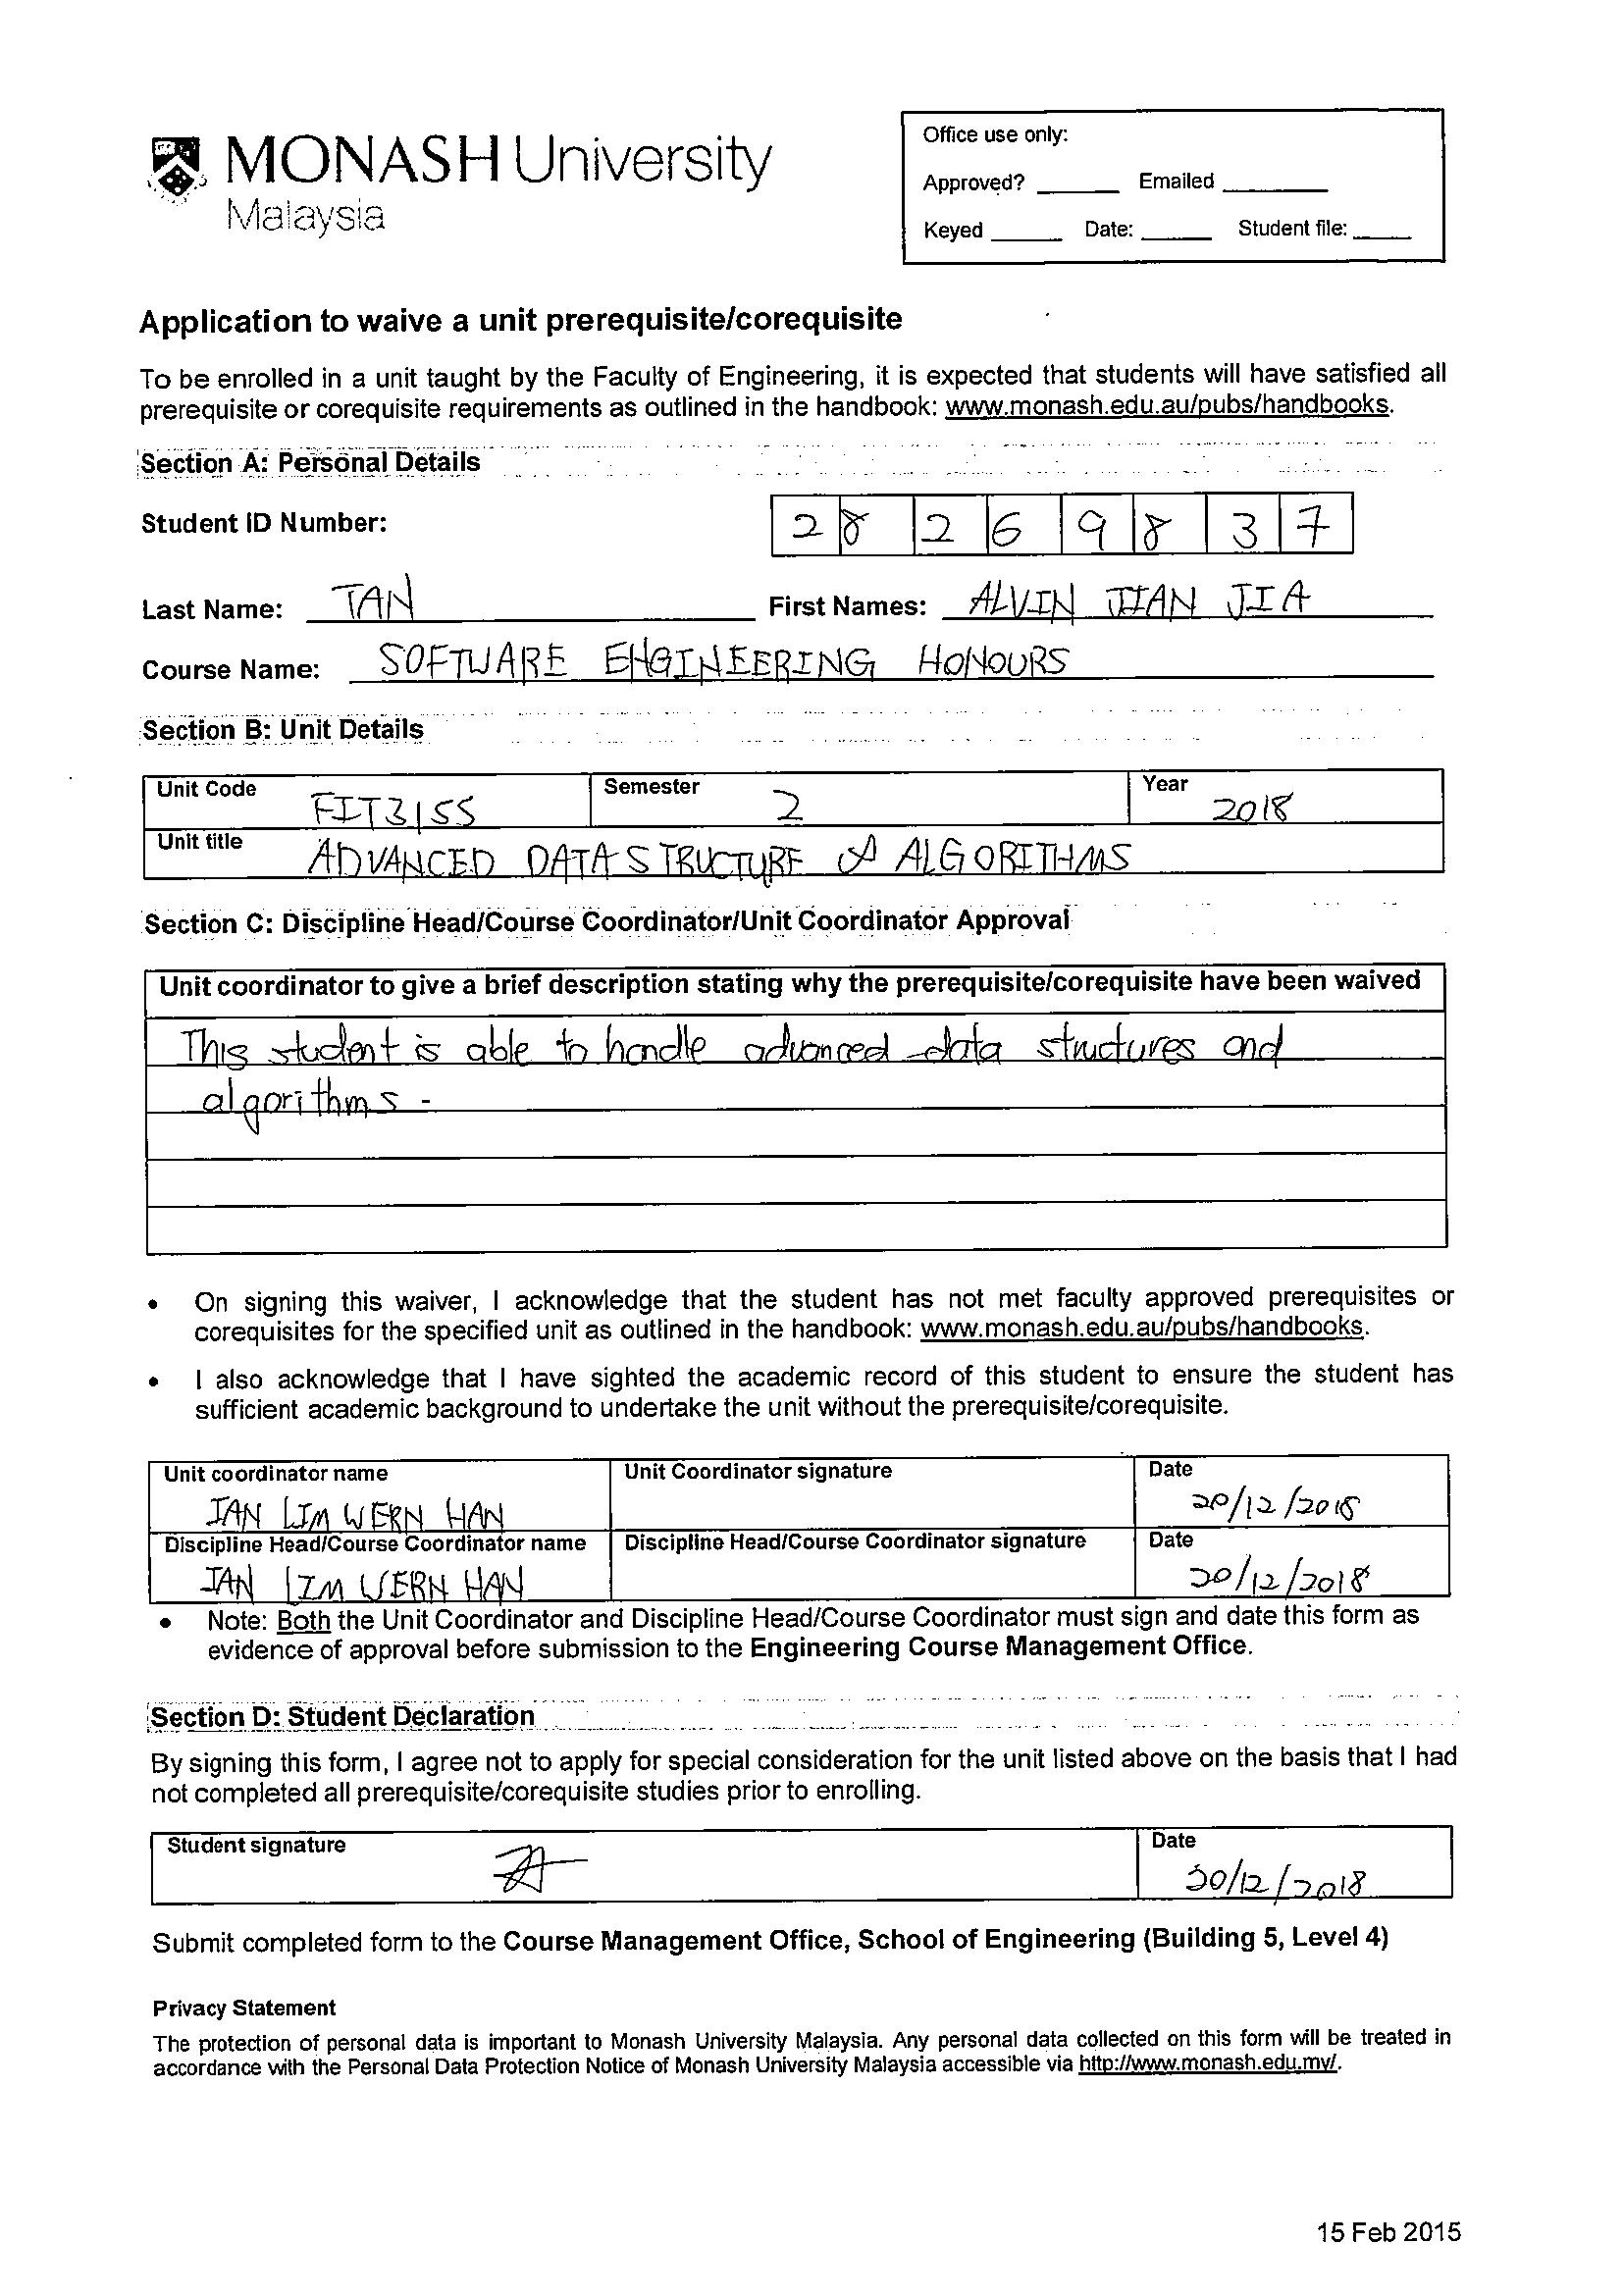 MONASH University
Malaysia
Office use only:
Approved? ______ Emailed ________
Keyed _____ Date: _____ Student file: ____
Application to waive a unit prerequisite/corequisite
To be enrolled in a unit taught by the Faculty of Engineering, it is expected that students will have satisfied all
prerequisite or corequisite requirements as outlined in the handbook: www.monash.edu.au/pubs/handbooks.
Section A: Personal Details
Student ID Number: 2 8 2 6 9 8 3 7
Last Name: TAN First Names: ALVIN JIAN JIA
Course Name: SOFTWARE ENGINEERING HONOURS
Section B: Unit Details
Unit Code FIT3155 Semester 2 Year 2018
Unit title ADVANCED DATA STRUCTURE & ALGORITHMS
Section C: Discipline Head/Course Coordinator/Unit Coordinator Approval
Unit coordinator to give a brief description stating why the prerequisite/corequisite have been waived
This student is able to handle advanced data structures and
algorithms.
• On signing this waiver, I acknowledge that the student has not met faculty approved prerequisites or
corequisites for the specified unit as outlined in the handbook: www.monash.edu.au/pubs/handbooks.
• I also acknowledge that I have sighted the academic record of this student to ensure the student has
sufficient academic background to undertake the unit without the prerequisite/corequisite.
Unit coordinator name Unit Coordinator signature Date
IAN LIM WERN HAN 20/12/2018
Discipline Head/Course Coordinator name Discipline Head/Course Coordinator signature Date
IAN LIM WERN HAN 20/12/2018
• Note: Both the Unit Coordinator and Discipline Head/Course Coordinator must sign and date this form as
evidence of approval before submission to the Engineering Course Management Office.
Section D: Student Declaration
By signing this form, I agree not to apply for special consideration for the unit listed above on the basis that I had
not completed all prerequisite/corequisite studies prior to enrolling.
Student signature Date
/12/2018
Submit completed form to the Course Management Office, School of Engineering (Building 5, Level 4)
Privacy Statement
The protection of personal data is important to Monash University Malaysia. Any personal data collected on this form will be treated in
accordance with the Personal Data Protection Notice of Monash University Malaysia accessible via http://www.monash.edu.my/.
15 Feb 2015